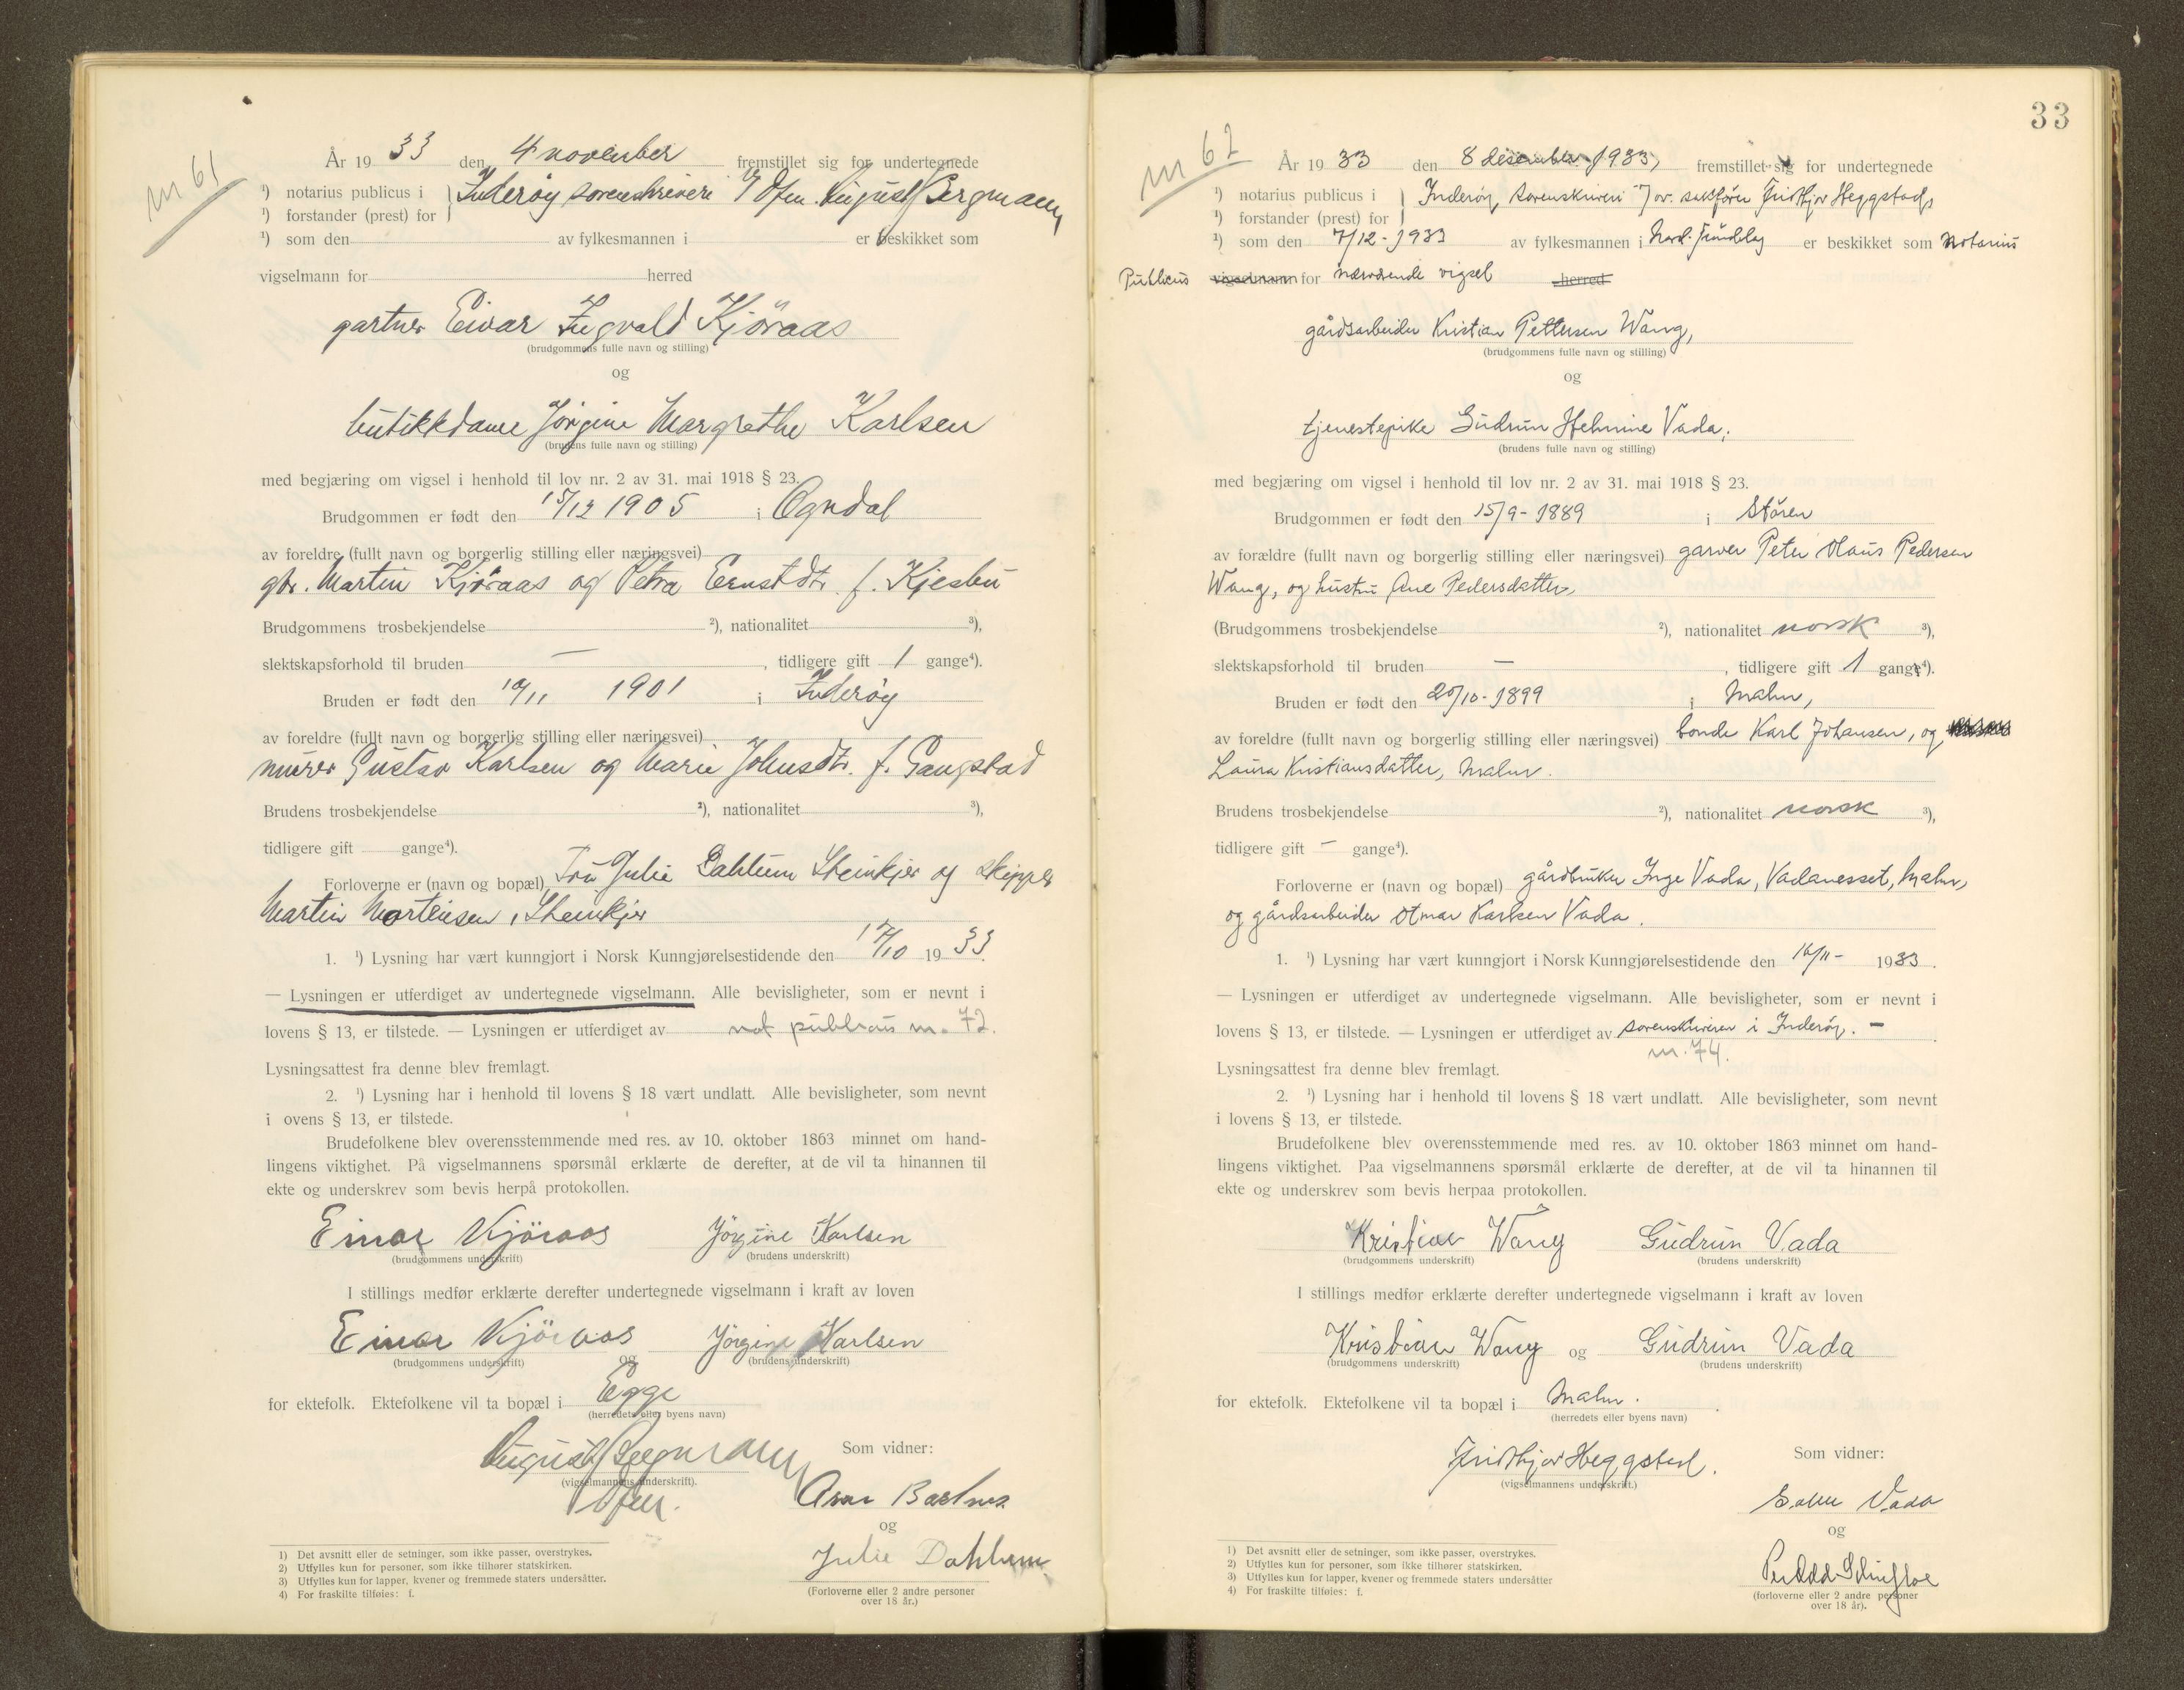 nr 61
År 19 33 den 4 november fremstillet sig for undertegnede
¹) notarius publicus i Inderøy sorenskriveri v/ Ofm. August Bergmann
¹) forstander (prest) for
¹) som den av fylkesmannen i er beskikket som
vigselmann for herred
gartner Einar Ingvald Kjöraas
(brudgommens fulle navn og stilling)
og
butikkdame Jörgine Margrethe Karlsen
(brudens fulle navn og stilling)
med begjæring om vigsel i henhold til lov nr. 2 av 31. mai 1918 § 23.
Brudgommen er født den 15/12 1905 i Ogndal
av foreldre (fullt navn og borgerlig stilling eller næringsvei)
gbr. Martin Kjöraas og Petra Ernstdtr. f. Kjesbu
Brudgommens trosbekjendelse ²), nationalitet ³),
slektskapsforhold til bruden — , tidligere gift 1 gange⁴).
Bruden er født den 10/11 1901 i Inderøy
av foreldre (fullt navn og borgerlig stilling eller næringsvei)
murer Gustav Karlsen og Marie Johnsdtr. f. Gangstad
Brudens trosbekjendelse ²), nationalitet ³),
tidligere gift gange⁴).
Forloverne er (navn og bopæl) Fru Julie Dahlum Steinkjer og skipper
Martin Mortensen, Steinkjer
1. ¹) Lysning har vært kunngjort i Norsk Kunngjørelsestidende den 17/10 19 33.
— Lysningen er utferdiget av undertegnede vigselmann. Alle bevisligheter, som er nevnt i
lovens § 13, er tilstede. — Lysningen er utferdiget av not publicus nr. 72.
Lysningsattest fra denne blev fremlagt.
2. ¹) Lysning har i henhold til lovens § 18 vært undlatt. Alle bevisligheter, som nevnt
i ovens § 13, er tilstede.
Brudefolkene blev overensstemmende med res. av 10. oktober 1863 minnet om hand-
lingens viktighet. På vigselmannens spørsmål erklærte de derefter, at de vil ta hinannen til
ekte og underskrev som bevis herpå protokollen.
Einar Kjöraas Jörgine Karlsen
(brudgommens underskrift) (brudens underskrift)
I stillings medfør erklærte derefter undertegnede vigselmann i kraft av loven
Einar Kjöraas og Jörgine Karlsen
(brudgommens underskrift) (brudens underskrift)
for ektefolk. Ektefolkene vil ta bopæl i Egge
(herredets eller byens navn)
August Bergmann
(vigselmannens underskrift).
Ofm.
Som vidner:
og
Julie Dahlum
(Forloverne eller 2 andre personer
over 18 år.)
1) Det avsnitt eller de setninger, som ikke passer, overstrykes.
2) Utfylles kun for personer, som ikke tilhører statskirken.
3) Utfylles kun for lapper, kvener og fremmede staters undersåtter.
4) For fraskilte tilføies: f.
33
nr 62
År 19 33 den 8 desember 1933, fremstillet sig for undertegnede
¹) notarius publicus i Inderöy sorenskriveri v/ o.r. sakförer Fridthjov Heggstad,
¹) forstander (prest) for
¹) som den 7/12-1933 av fylkesmannen i Nord-Tröndelag er beskikket som notarius
Publicus vigselmann for nærværende vigsel herred
gårdsarbeider Kristian Pettersen Wang,
(brudgommens fulle navn og stilling)
og
tjenestepike Gudrun Helmine Vada,
(brudens fulle navn og stilling)
med begjæring om vigsel i henhold til lov nr. 2 av 31. mai 1918 § 23.
Brudgommen er født den 15/9-1889 i Stören
av forældre (fullt navn og borgerlig stilling eller næringsvei) garver Peter Olaus Pedersen
Wang, og hustru Ane Pedersdatter,
(Brudgommens trosbekjendelse ²), nationalitet norsk ³),
slektskapsforhold til bruden — , tidligere gift 1 gange⁴).
Bruden er født den 20/10-1899 i Malm,
av foreldre (fullt navn og borgerlig stilling eller næringsvei) bonde Karl Johansen, og
Laura Kristiansdatter, Malm.
Brudens trosbekjendelse ²), nationalitet norsk ³),
tidligere gift — gange⁴).
Forloverne er (navn og bopæl) gårdbruker Inge Vada, Vadanesset, Malm,
og gårdsarbeider Otmar Karlsen Vada.
1. ¹) Lysning har vært kunngjort i Norsk Kunngjørelsestidende den 16/11- 1933.
— Lysningen er utferdiget av undertegnede vigselmann. Alle bevisligheter, som er nevnt i
lovens § 13, er tilstede. — Lysningen er utferdiget av sorenskriveren i Inderöy. —
nr. 74.
Lysningsattest fra denne blev fremlagt.
2. ¹) Lysning har i henhold til lovens § 18 vært undlatt. Alle bevisligheter, som nevnt
i lovens § 13, er tilstede.
Brudefolkene blev overensstemmende med res. av 10. oktober 1863 minnet om hand-
lingens viktighet. Paa vigselmannens spørsmål erklærte de derefter, at de vil ta hinannen til
ekte og underskrev som bevis herpaa protokollen.
Kristian Wang Gudrun Vada
(brudgommens underskrift) (brudens underskrift)
I stillings medfør erklærte derefter undertegnede vigselmann i kraft av loven
Kristian Wang og Gudrun Vada
(brudgommens underskrift) (brudens underskrift)
for ektefolk. Ektefolkene vil ta bopæl i Malm.
(herredets eller byens navn)
Fridthjov Heggstad.
(vigselmannens underskrift.)
Som vidner:
Vada
og
(forloverne eller 2 andre personer
over 18 år).
1) Det avsnitt eller de setninger, som ikke passer, overstrykes.
2) Utfylles kun for personer, som ikke tilhører statskirken.
3) Utfylles kun for lapper, kvener og fremmede staters undersåtter
4) For fraskilte tilføies: f.